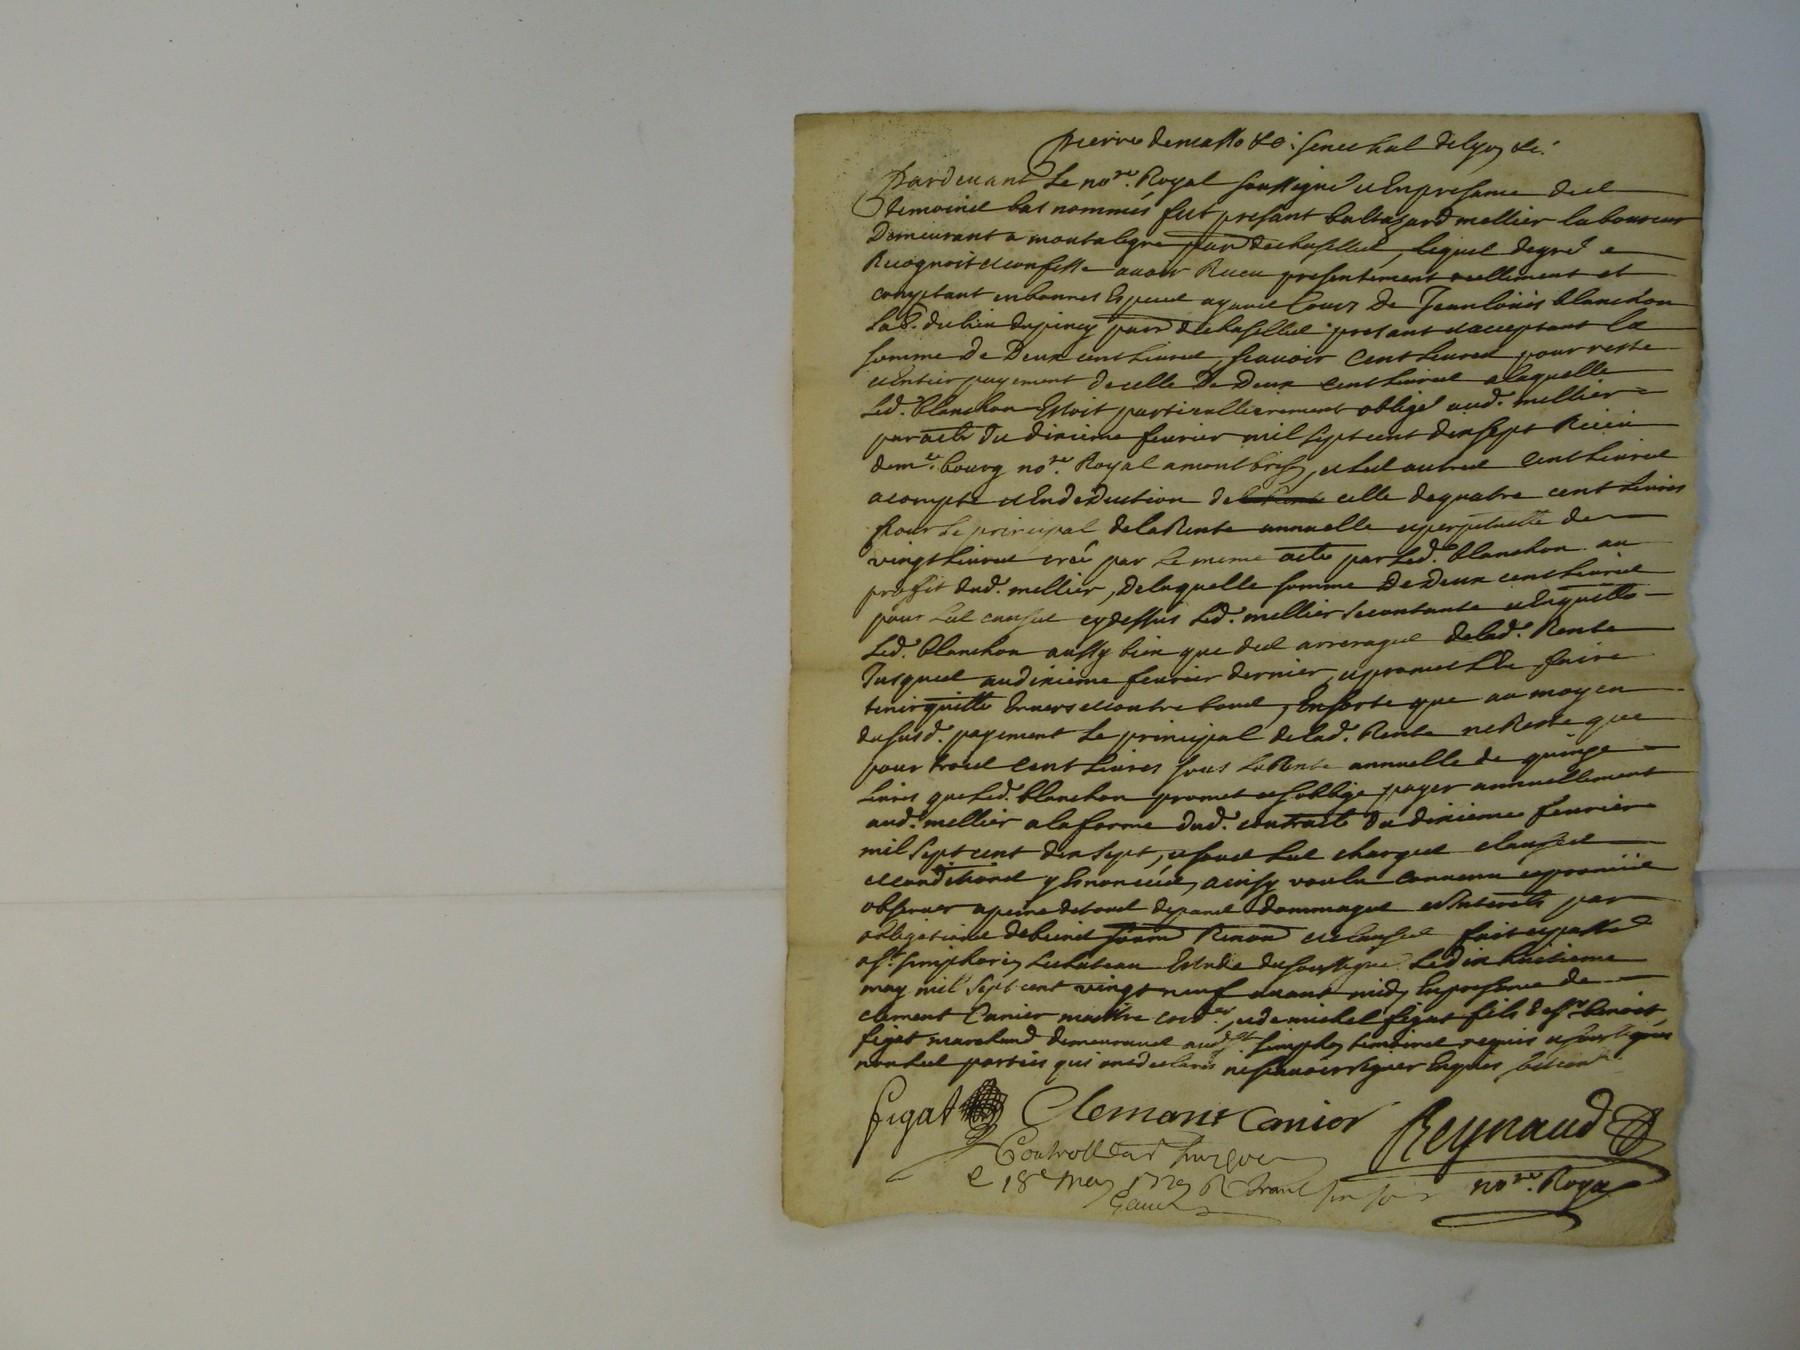 Pierre de masso &c: senechal de lyon &c:
Pardevant Le no.re Royal soussigné et En presance des
temoins bas nommés fut presant baltazard mellier laboureur
Demeurant a montalegre parr de chasselles, lequel de gré e
Recognoit et confesse avoir Receu presentement reellement et
comptant en bonnes Especes ayant Cours de Jean louis blanchon
Lab. du lieu parr de chasselles presant et acceptant la
somme de Deux cent Livres, scavoir Cent Livres pour reste
et Entier payement de celle de Deux cent Livres a laquelle
Led. blanchon Estoit particullierement obligé aud. mellier =
par acte du dixieme fevrier mil sept cent dix sept Receu
de me. bourg no.re Royal a montbrison, et Les autres Cent Livres
a compte et En deduction de celle de quatre cent Livres
pour Le principal de la Rente annuelle et perpetuelle de
vingt Livres creé par Le meme acte par Led. blanchon au
proffit dud. mellier, De laquelle somme De Deux cent Livres
pour Les causes cy dessus Led. mellier se contante et En quitte
Led. blanchon aussy bien que des arrerages de lad. Rente
Jusques au dixieme fevrier dernier, et promet L'en faire
tenir quitte Envers et contre tous, En sorte que au moyen
du susd. payement Le principal de lad. Rente ne Reste que
pour trois Cent Livres sous La Rente annuelle de quinze
Livres que Led. blanchon promet et s'obblige payer annuellement
aud. mellier a la forme dud. contract du dixieme fevrier
mil sept cent dix sept, et sous Les charges clauses
et conditions y Enoncées, ainsy voulu convenu et promis
observer a peine de tous depans dommages et Interets par
obligations de biens soum Renon et clauses fait et passé
a st. simphorien Le chateau Estude du soussigné Le dix huitieme
may mil sept cent vingt neuf avant midy En presance de
clement Canier maitre cord.er, et de michel figat fils de sr. benoit
figat marchand demeurant aud. st simphen temoins requis et soussignés
non Les parties qui ont declarés ne scavoir signer Enquis,
figat Clemant Canier Reynaud
Controllé a st
le 18e May 1729 R
no.re Royal